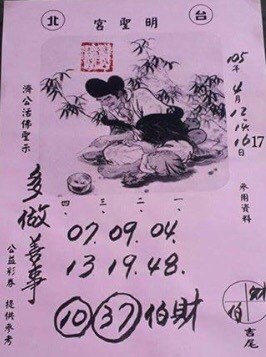 台 明聖宮 北
105年
4月
12.14.
16日 17
參用資料
濟公活佛聖示
多做善事
公益彩券 提供參考
一、二、三、四、
07. 09. 04.
13 19. 48.
10 37 伯財
伯 財
吉尾